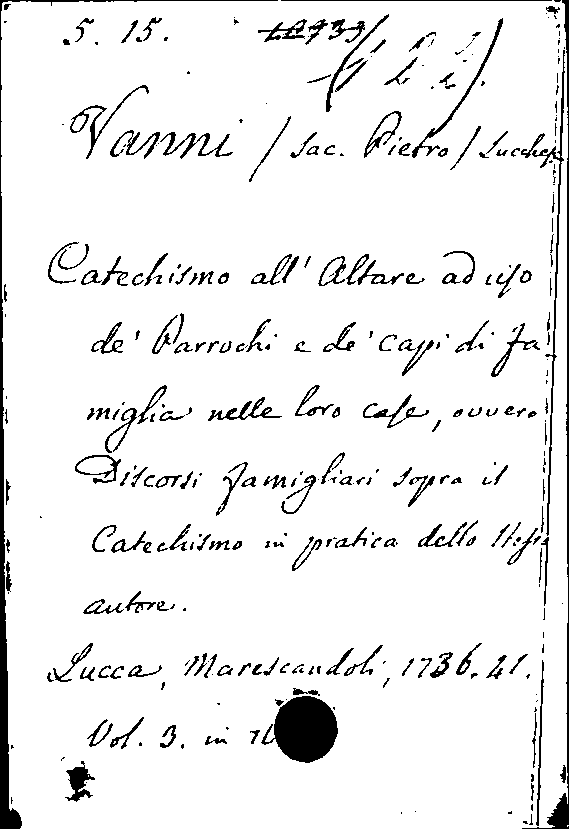 5. 15.
Vanni / Sac. Pietro / Lucchese
Catechismo all' Altare ad uso
de' Parrochi e de' capi di fa-
miglia nelle loro case, ovvero
Discorsi famigliari sopra il
Catechismo in pratica dello stesso
autore.
Lucca, Marescandoli, 1736. 41.
Vol. 3. in